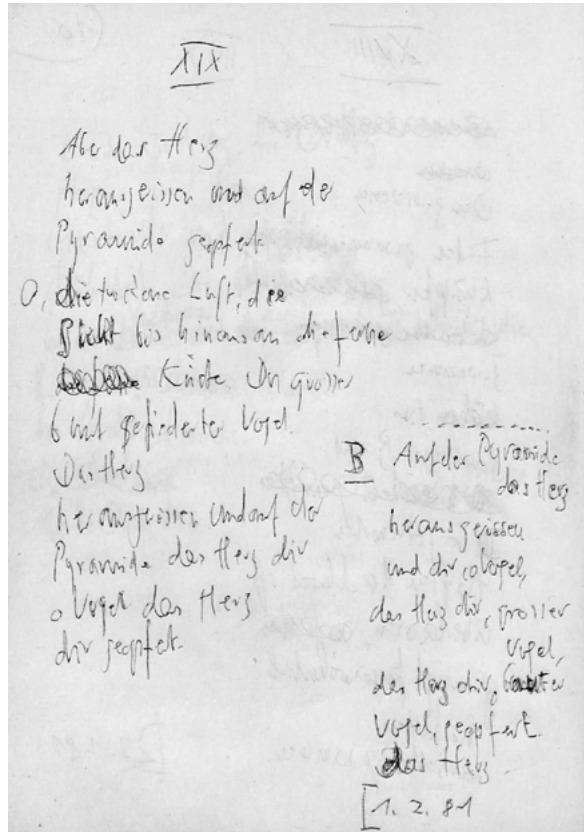 XIX
Aber das Herz
herausgerissen und auf der
Pyramide geopfert
O, die trockene Luft, die
steht bis hinaus an die ferne
Küste Du grosser
bunt gefiederter Vogel.
Das Herz
herausgerissen und auf der
Pyramide das Herz dir
o Vogel das Herz
dir geopfert.
B Auf der Pyramide
das Herz
herausgerissen
und dir, o Vogel,
das Herz dir, grosser
Vogel,
das Herz dir, bunter
Vogel, geopfert
das Herz.
[1. 2. 81